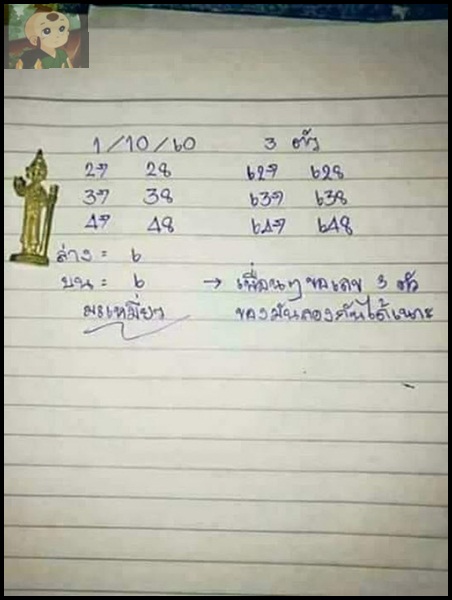 1/10/60 3 ตัว
27 28 627 628
37 38 637 638
47 48 647 648
ล่าง = 6
บน = 6 → เพื่อนๆ ขอเลข 3 ตัว
มะเหมี่ยว ของมันลองกันได้เนาะ